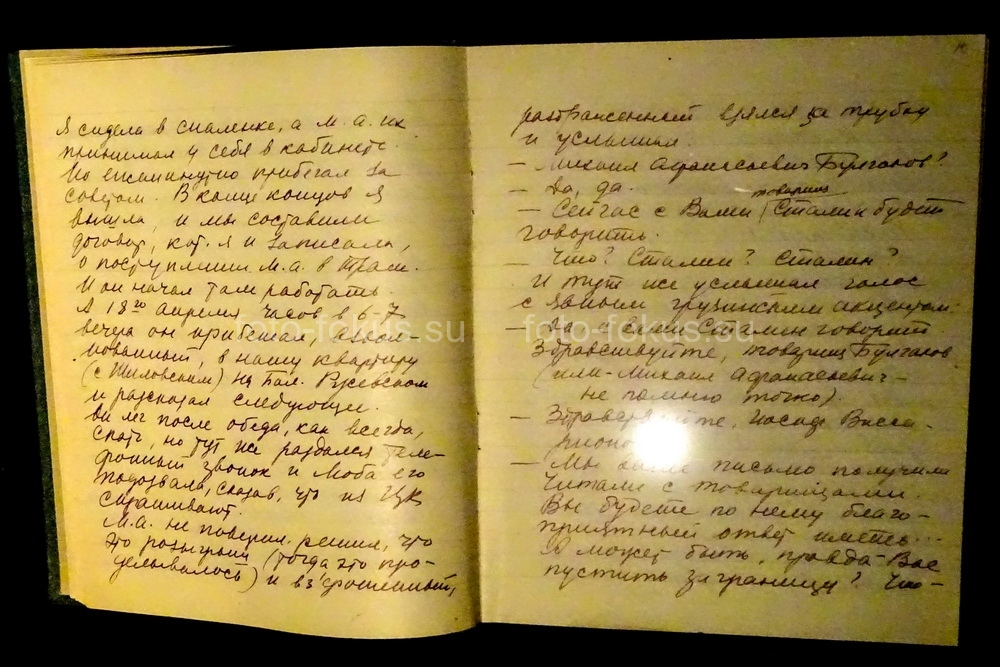 Я сидела в спаленке, а М.А. их
принимал у себя в кабинете.
Но ежеминутно прибегал за
советом. В конце концов я
вышла, и мы составили
договор, кот. я и записала,
о поступлении М.А. в Трам.
И он начал там работать.
А 18го апреля часов в 6-7
вечера он прибежал, взвол-
нованный, в нашу квартиру
(с Шиловским) на Бол. Ржевском
и рассказал следующее.
Он лег после обеда, как всегда,
спать, но тут же раздался теле-
фонный звонок и Люба его
подозвала, сказав, что из ЦК
спрашивают.
М.А. не поверил, решил, что
это розыгрыш (тогда это про-
делывалось) и взъерошенный,
раздраженный взялся за трубку
и услышал:
— Михаил Афанасьевич Булгаков?
— Да, да.
— Сейчас с Вами товарищ Сталин будет
говорить.
— Что? Сталин? Сталин?
И тут же услышал голос
с явным грузинским акцентом.
— Да, с вами Сталин говорит.
Здравствуйте, товарищ Булгаков
(или — Михаил Афанасьевич —
не помню точно).
— Здравствуйте, Иосиф Висса-
рионо
— Мы ваше письмо получили
Читали с товарищами.
Вы будете по нему благо-
приятный ответ иметь...
А может быть, правда Вас
пустить за границу? Что —
foto-fokus.su foto-fokus.su